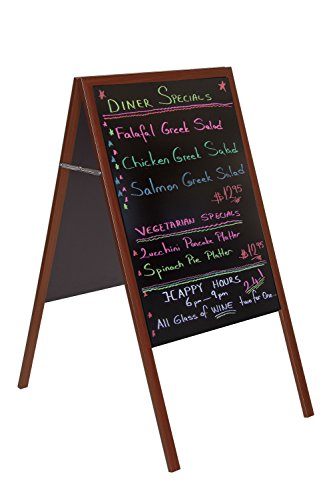 DINER SPECIALS
Falafal Greek Salad
Chicken Greek Salad
Salmon Greek Salad
$12.95
VEGETARIAN SPECIALS
Zucchini Pancake Platter
Spinach Pie Platter $12.95
HAPPY HOURS 2 4 1
6pm - 9pm
All Glass of WINE two for One...